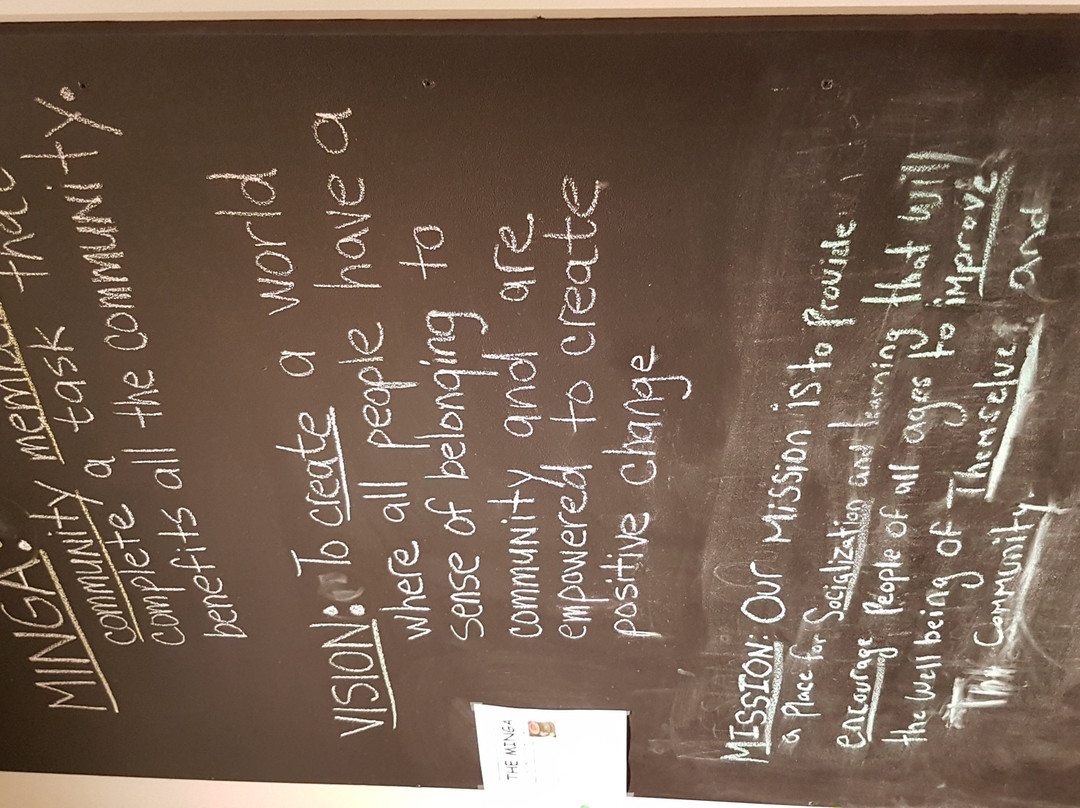 MINGA:
community member that
complete a task
benefits all the community.
VISION: To create a world
where all people have a
sense of belonging to
community and are
empowered to create
positive change
MISSION: Our Mission is to Provide
a Place for Socialization and learning that will
encourage People of all ages to improve
the Well being of Themselve and
The Community
THE MINGA